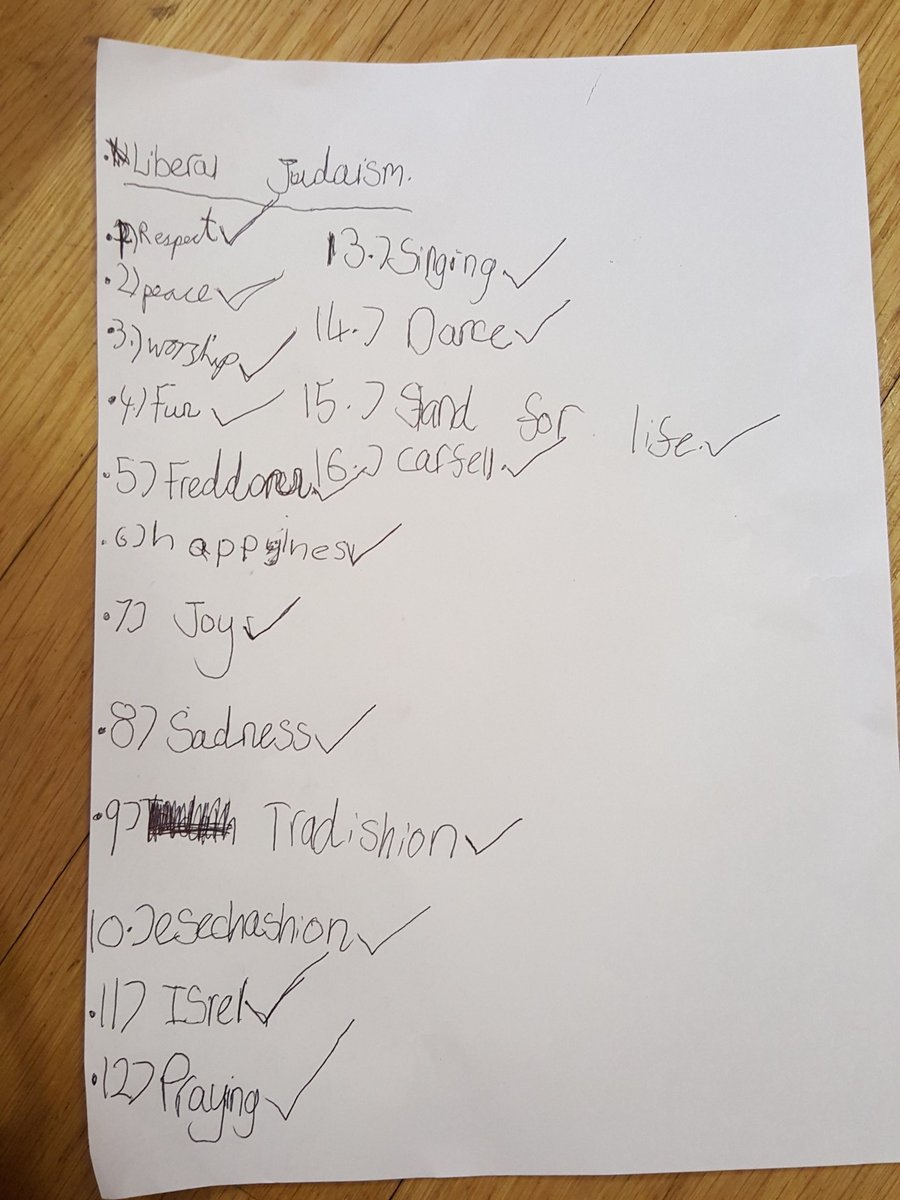 Liberal Judaism.
1) Respect
2) peace
3.) worship
4.) Fun
5) Freddom
6) happyines
7) Joy
8) Sadness
9) Tradishion
10.) esechashion
11) ISrel
12) Praying
13.) Singing
14.) Dance
15.) Stand for life.
16.) carfell